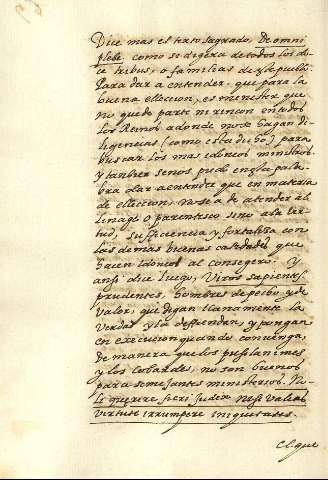 Dize mas el texto sagrado, De omni
plebe, como se dixera de todos los do
ce tribus, o familias de este pueblo
Para dar a entender, que para la
buena eleccion, es menester que
no quede parte ni rincon en todos
los Reinos adonde no se hagan di
ligencias (como esta dicho) para
buscar los mas idoneos ministros.
y tanbien senos pudo en esta pala
bra dar a entender que en materia
de elleccion, no se a de atender al
linage o parentesco sino a la vir
tud, sufficiencia y fortaleza con
las demas buenas calidades que
hacen idoneo al consegero; y
ansi dice luego, Viros sapientes
prudentes, hombres de pecho y de
valor, que digan llanamente la
verdad y la deffiendan, y pongan
en execucion quando convenga,
de manera que los pusilanimes
y los cobardes, no son buenos
para semejantes ministerios. No
li querere fieri judex nisi valeas
virtute irrumpere iniquitates.
el que